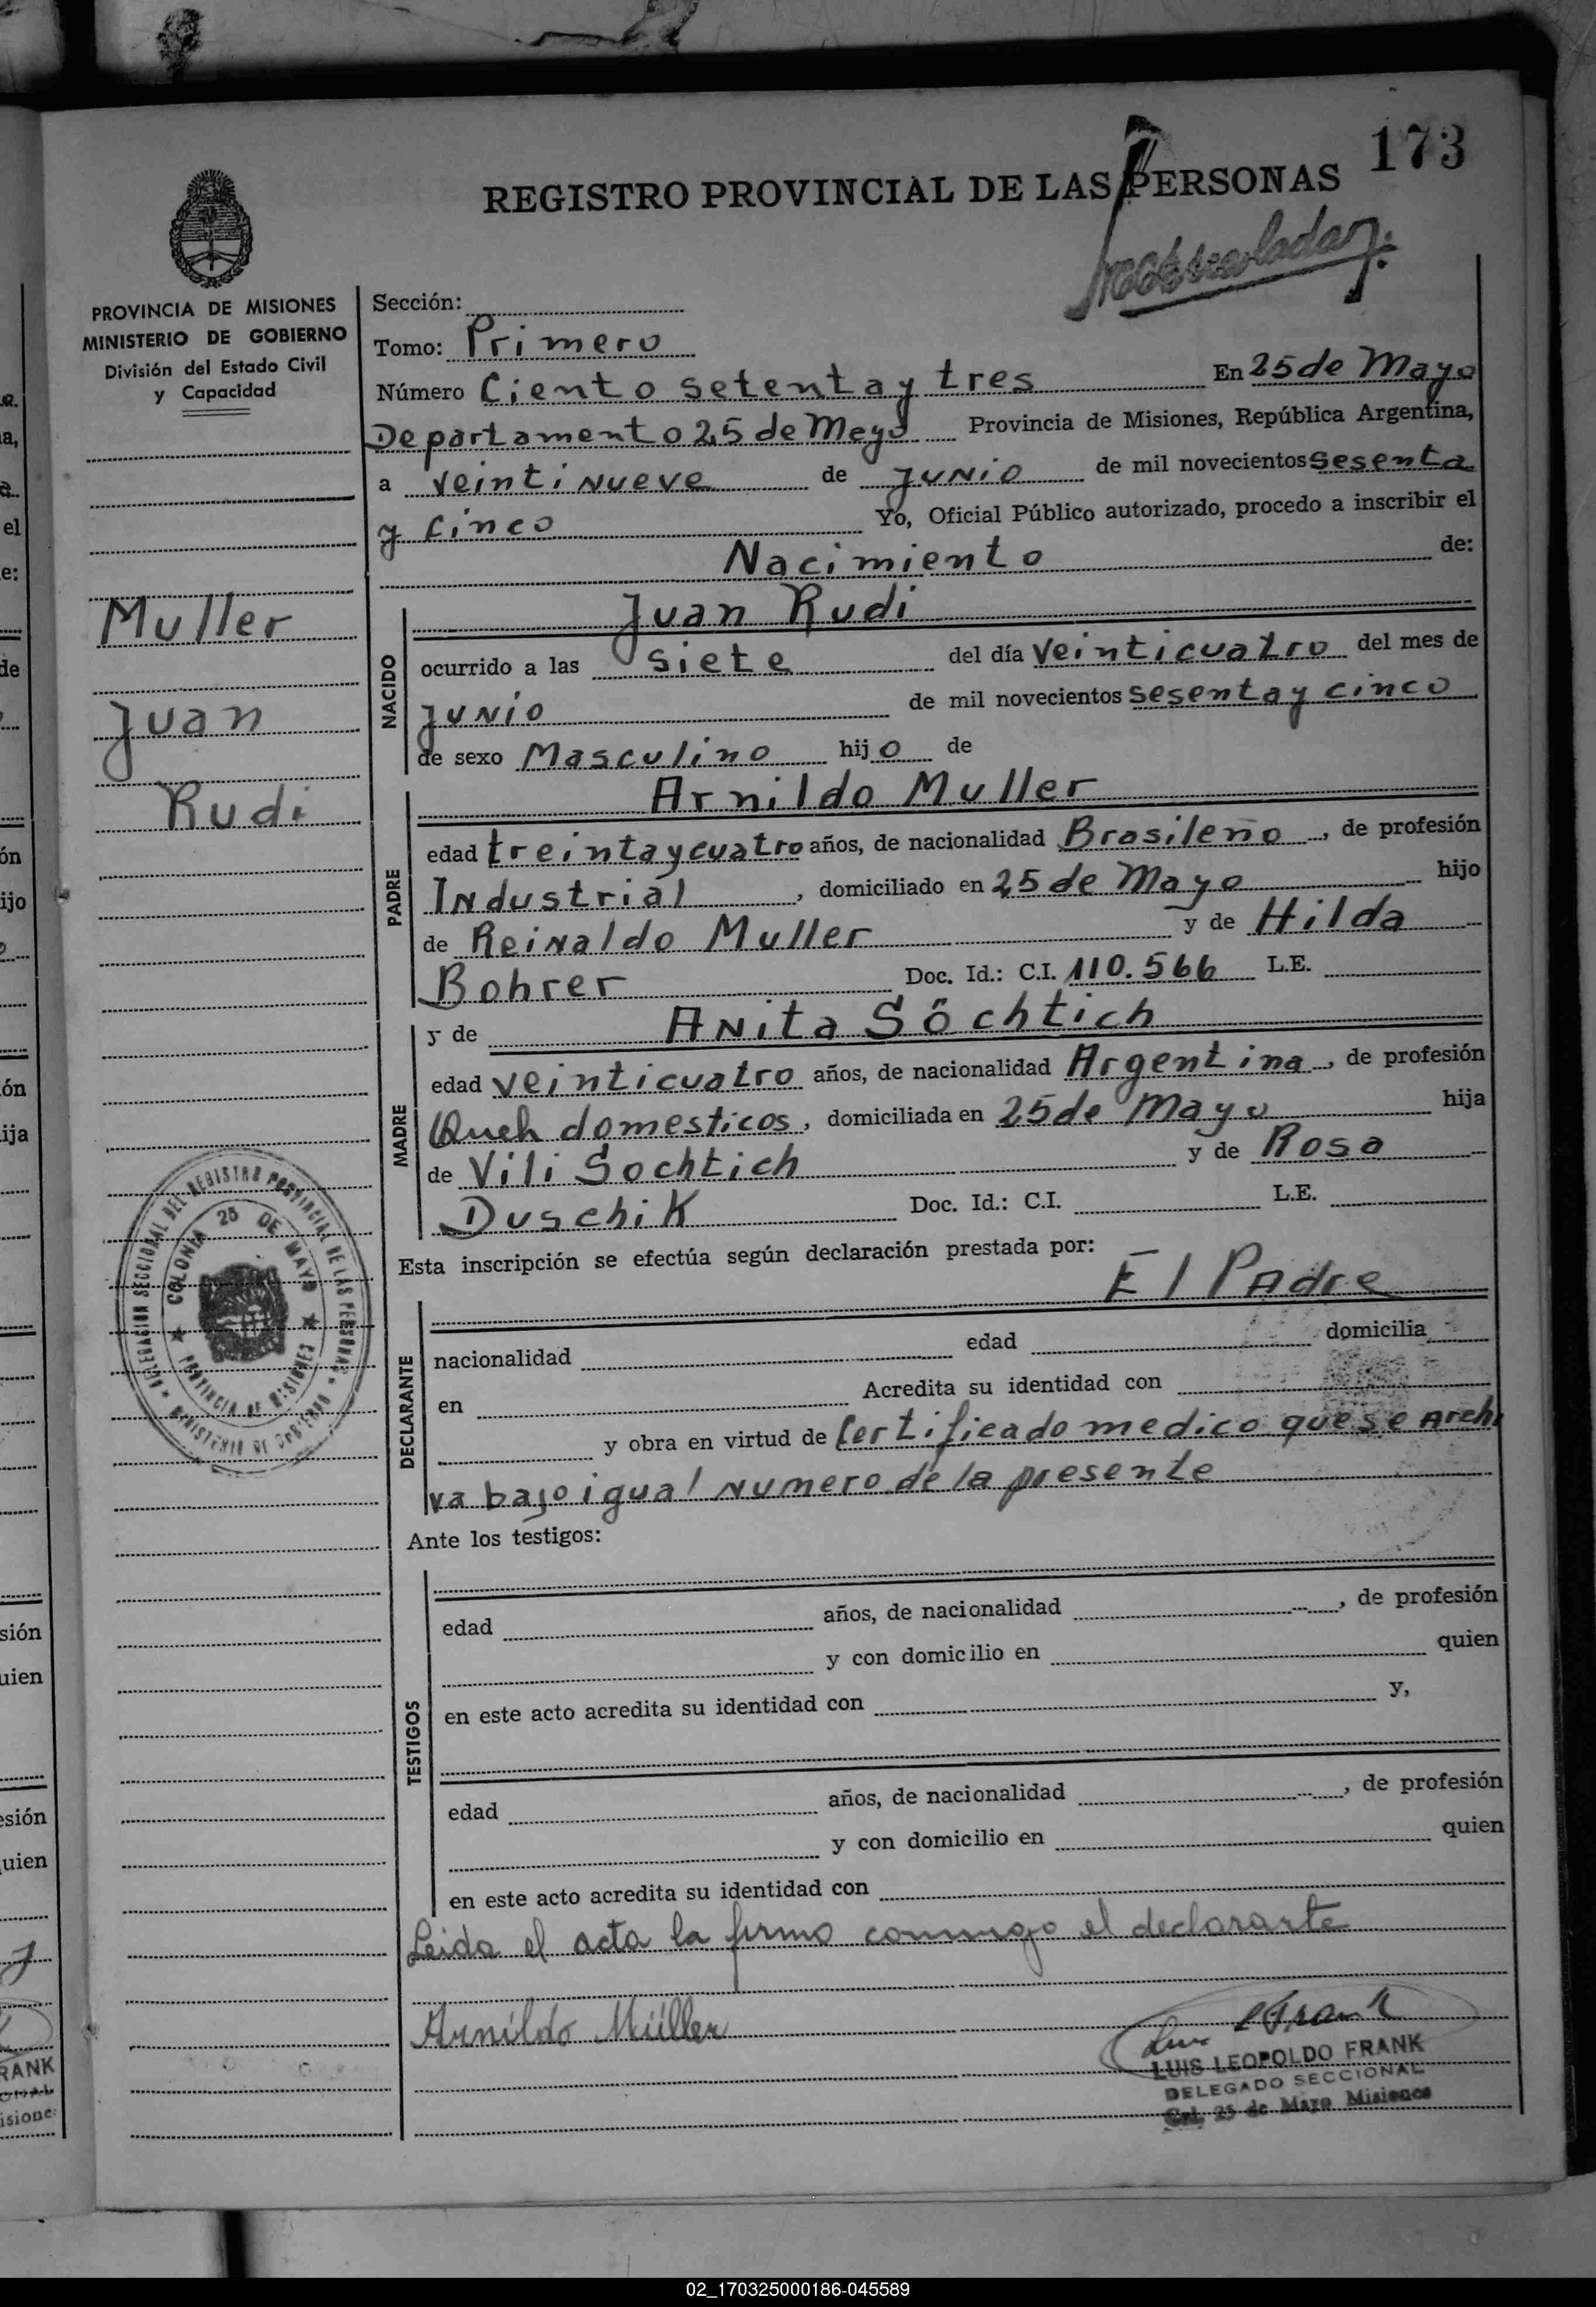 173
REGISTRO PROVINCIAL DE LAS PERSONAS
PROVINCIA DE MISIONES
MINISTERIO DE GOBIERNO
División del Estado Civil
y Capacidad
Muller
Juan
Rudi
DELEGACION SECCIONAL DEL REGISTRO PROVINCIAL DE LAS PERSONAS
MINISTERIO DE GOBIERNO
COLONIA 25 DE MAYO
PROVINCIA DE MISIONES
Sección:
Tomo: Primero
Número Ciento setenta y tres En 25 de Mayo
Departamento 25 de Mayo Provincia de Misiones, República Argentina,
a veinti nueve de junio de mil novecientos sesenta
y cinco Yo, Oficial Público autorizado, procedo a inscribir el
Nacimiento de:
NACIDO
Juan Rudi
ocurrido a las siete del día veinticuatro del mes de
junio de mil novecientos sesenta y cinco
de sexo Masculino hijo de
PADRE
Arnildo Muller
edad treinta y cuatro años, de nacionalidad Brasileño, de profesión
Industrial, domiciliado en 25 de Mayo hijo
de Reinaldo Muller y de Hilda
Bohrer Doc. Id.: C.I. 110.566 L.E.
MADRE
y de Anita Söchtich
edad veinticuatro años, de nacionalidad Argentina, de profesión
Queh domesticos, domiciliada en 25 de Mayo hija
de Vili Sochtich y de Rosa
Duschik Doc. Id.: C.I. L.E.
Esta inscripción se efectúa según declaración prestada por:
El Padre
DECLARANTE
nacionalidad edad domicilia
en Acredita su identidad con
y obra en virtud de Certificado medico que se Archi
va bajo igual numero de la presente
Ante los testigos:
TESTIGOS
edad años, de nacionalidad , de profesión
y con domicilio en quien
en este acto acredita su identidad con y,
edad años, de nacionalidad , de profesión
y con domicilio en quien
en este acto acredita su identidad con
Leida el acta la firmo conmigo el declarante
Arnildo Müller
LUIS LEOPOLDO FRANK
DELEGADO SECCIONAL
Col. 25 de Mayo Misiones
02_170325000186-045589